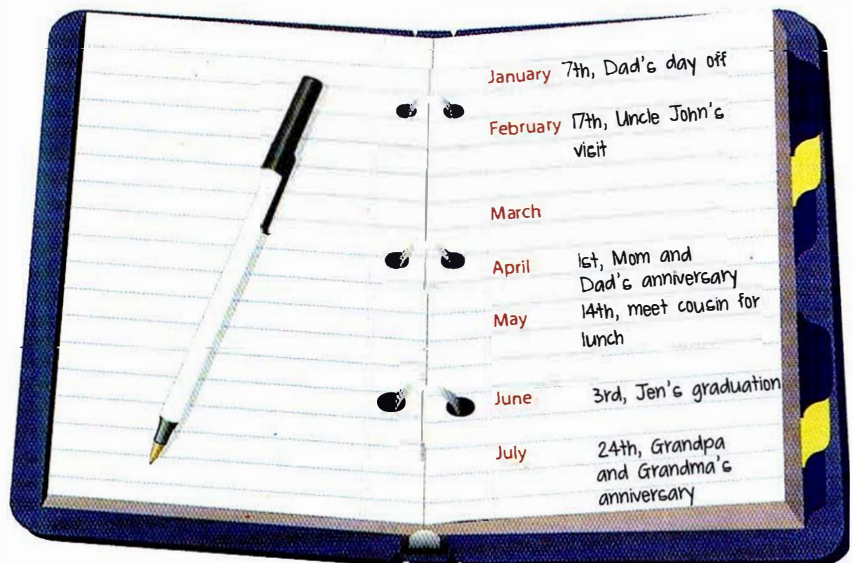 January 7th, Dad's day off
February 17th, Uncle John's
visit
March
April 1st, Mom and
Dad's anniversary
May 14th, meet cousin for
lunch
June 3rd, Jen's graduation
July 24th, Grandpa
and Grandma's
anniversary